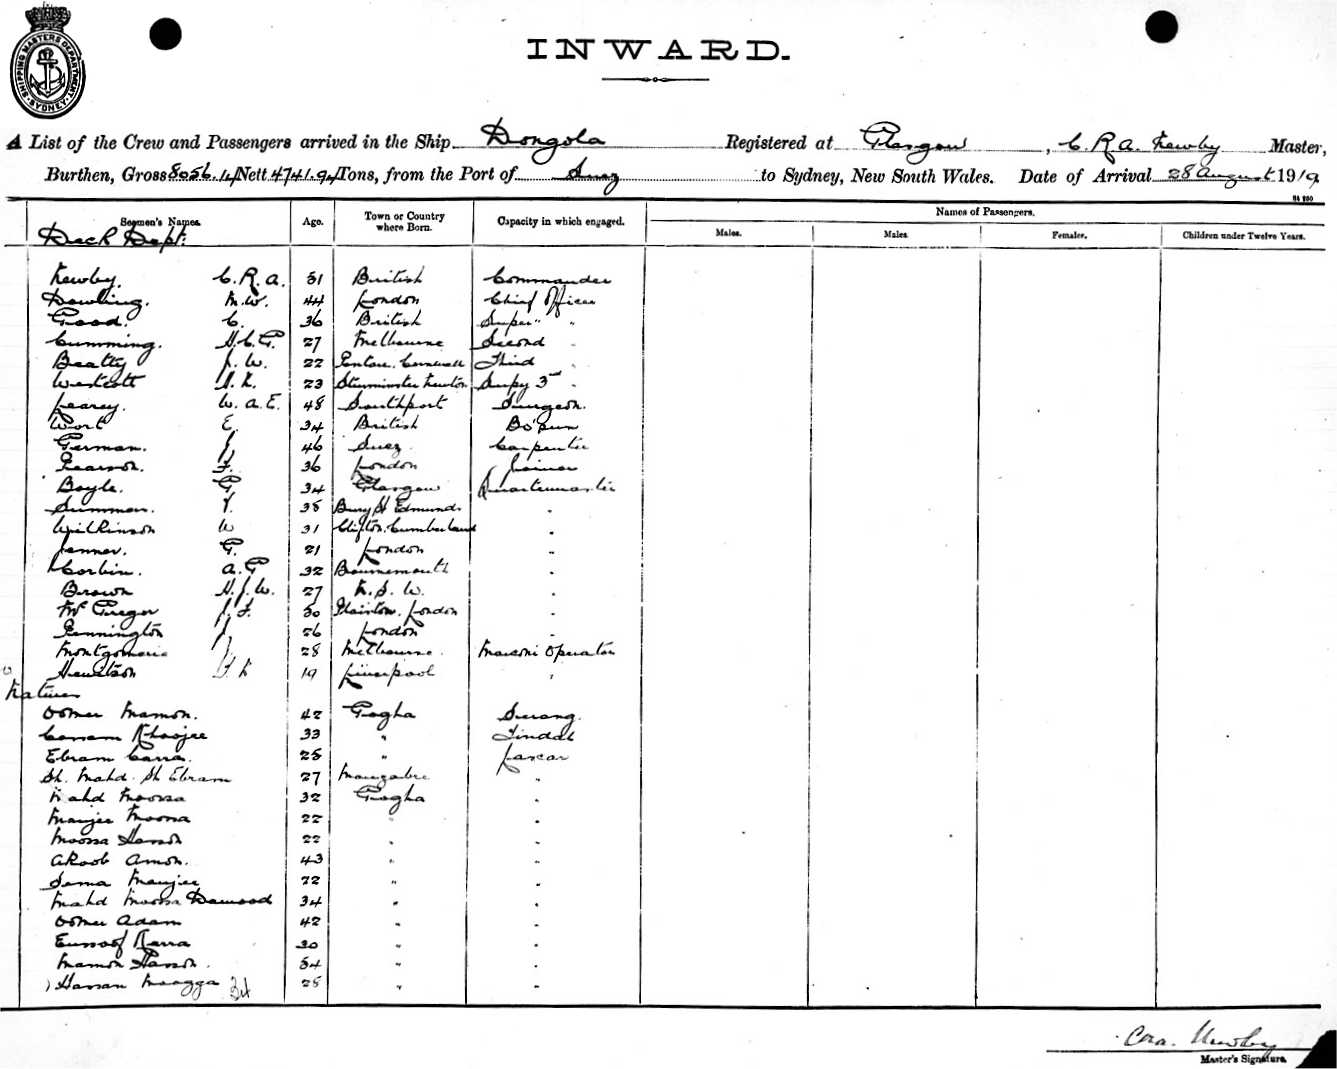 SHIPPING MASTERS DEPARTMENT SYDNEY
INWARD.
A List of the Crew and Passengers arrived in the Ship Dongola Registered at Glasgow, C. R. A. Newby Master,
Burthen, Gross 8056. Nett 4741.94 Tons, from the Port of Suez to Sydney, New South Wales. Date of Arrival 28 August 1919
Seamen's Names. Age. Town or Country where Born. Capacity in which engaged. Names of Passengers.
Males. Males. Females. Children under Twelve Years.
Deck Dept.
Newby. C. R. A. 51 British Commander
Dowling. N. W. 44 London Chief Officer
Good. C. 36 British Super " "
Cumming. H. C. G. 27 Melbourne Second "
Beatty J. W. 22 Cornwall Third "
Westcott 23 Sturminster Newton Supy 3rd "
Learey. W. A. E. 48 Southport Surgeon.
Wort E. 34 British Bo'sun
German. J. 46 Suez Carpenter
Pearson. F. 36 London Joiner
Boyle. G. 34 Glasgow Quartermaster
38 Bury St Edmunds "
Wilkinson W 31 Clifton. Cumberland "
Jenner. G. 21 London "
Corbin. A. G 32 Bournemouth "
Brown H. J. W. 27 N. S. W. "
McGregor J. F. 30 Plaistow. London "
Pennington J 26 London "
Montgomerie J 28 Melbourne. Marconi Operator
Hewitson 19 Liverpool "
Natives
Oomer Mamon. 42 Gogha Serang.
Cassam Khoojee 33 " Tindal
Ebram Carra. 28 " Lascar
Sk. Mahd. Sk Ebram 27 "
Mahd Moosa 32 Gogha "
Manjee Moosa 22 " "
Moosa Hasson 22 " "
Akoob Amon. 43 " "
Manjee 22 " "
Mahd Moosa Dawood 34 " "
Oomer Adam 42 " "
Eussoof Karra 30 " "
Mamon Hasson. 54 " "
Hassan Moogga 28 " "
34
C R A. Newby
Master's Signature.